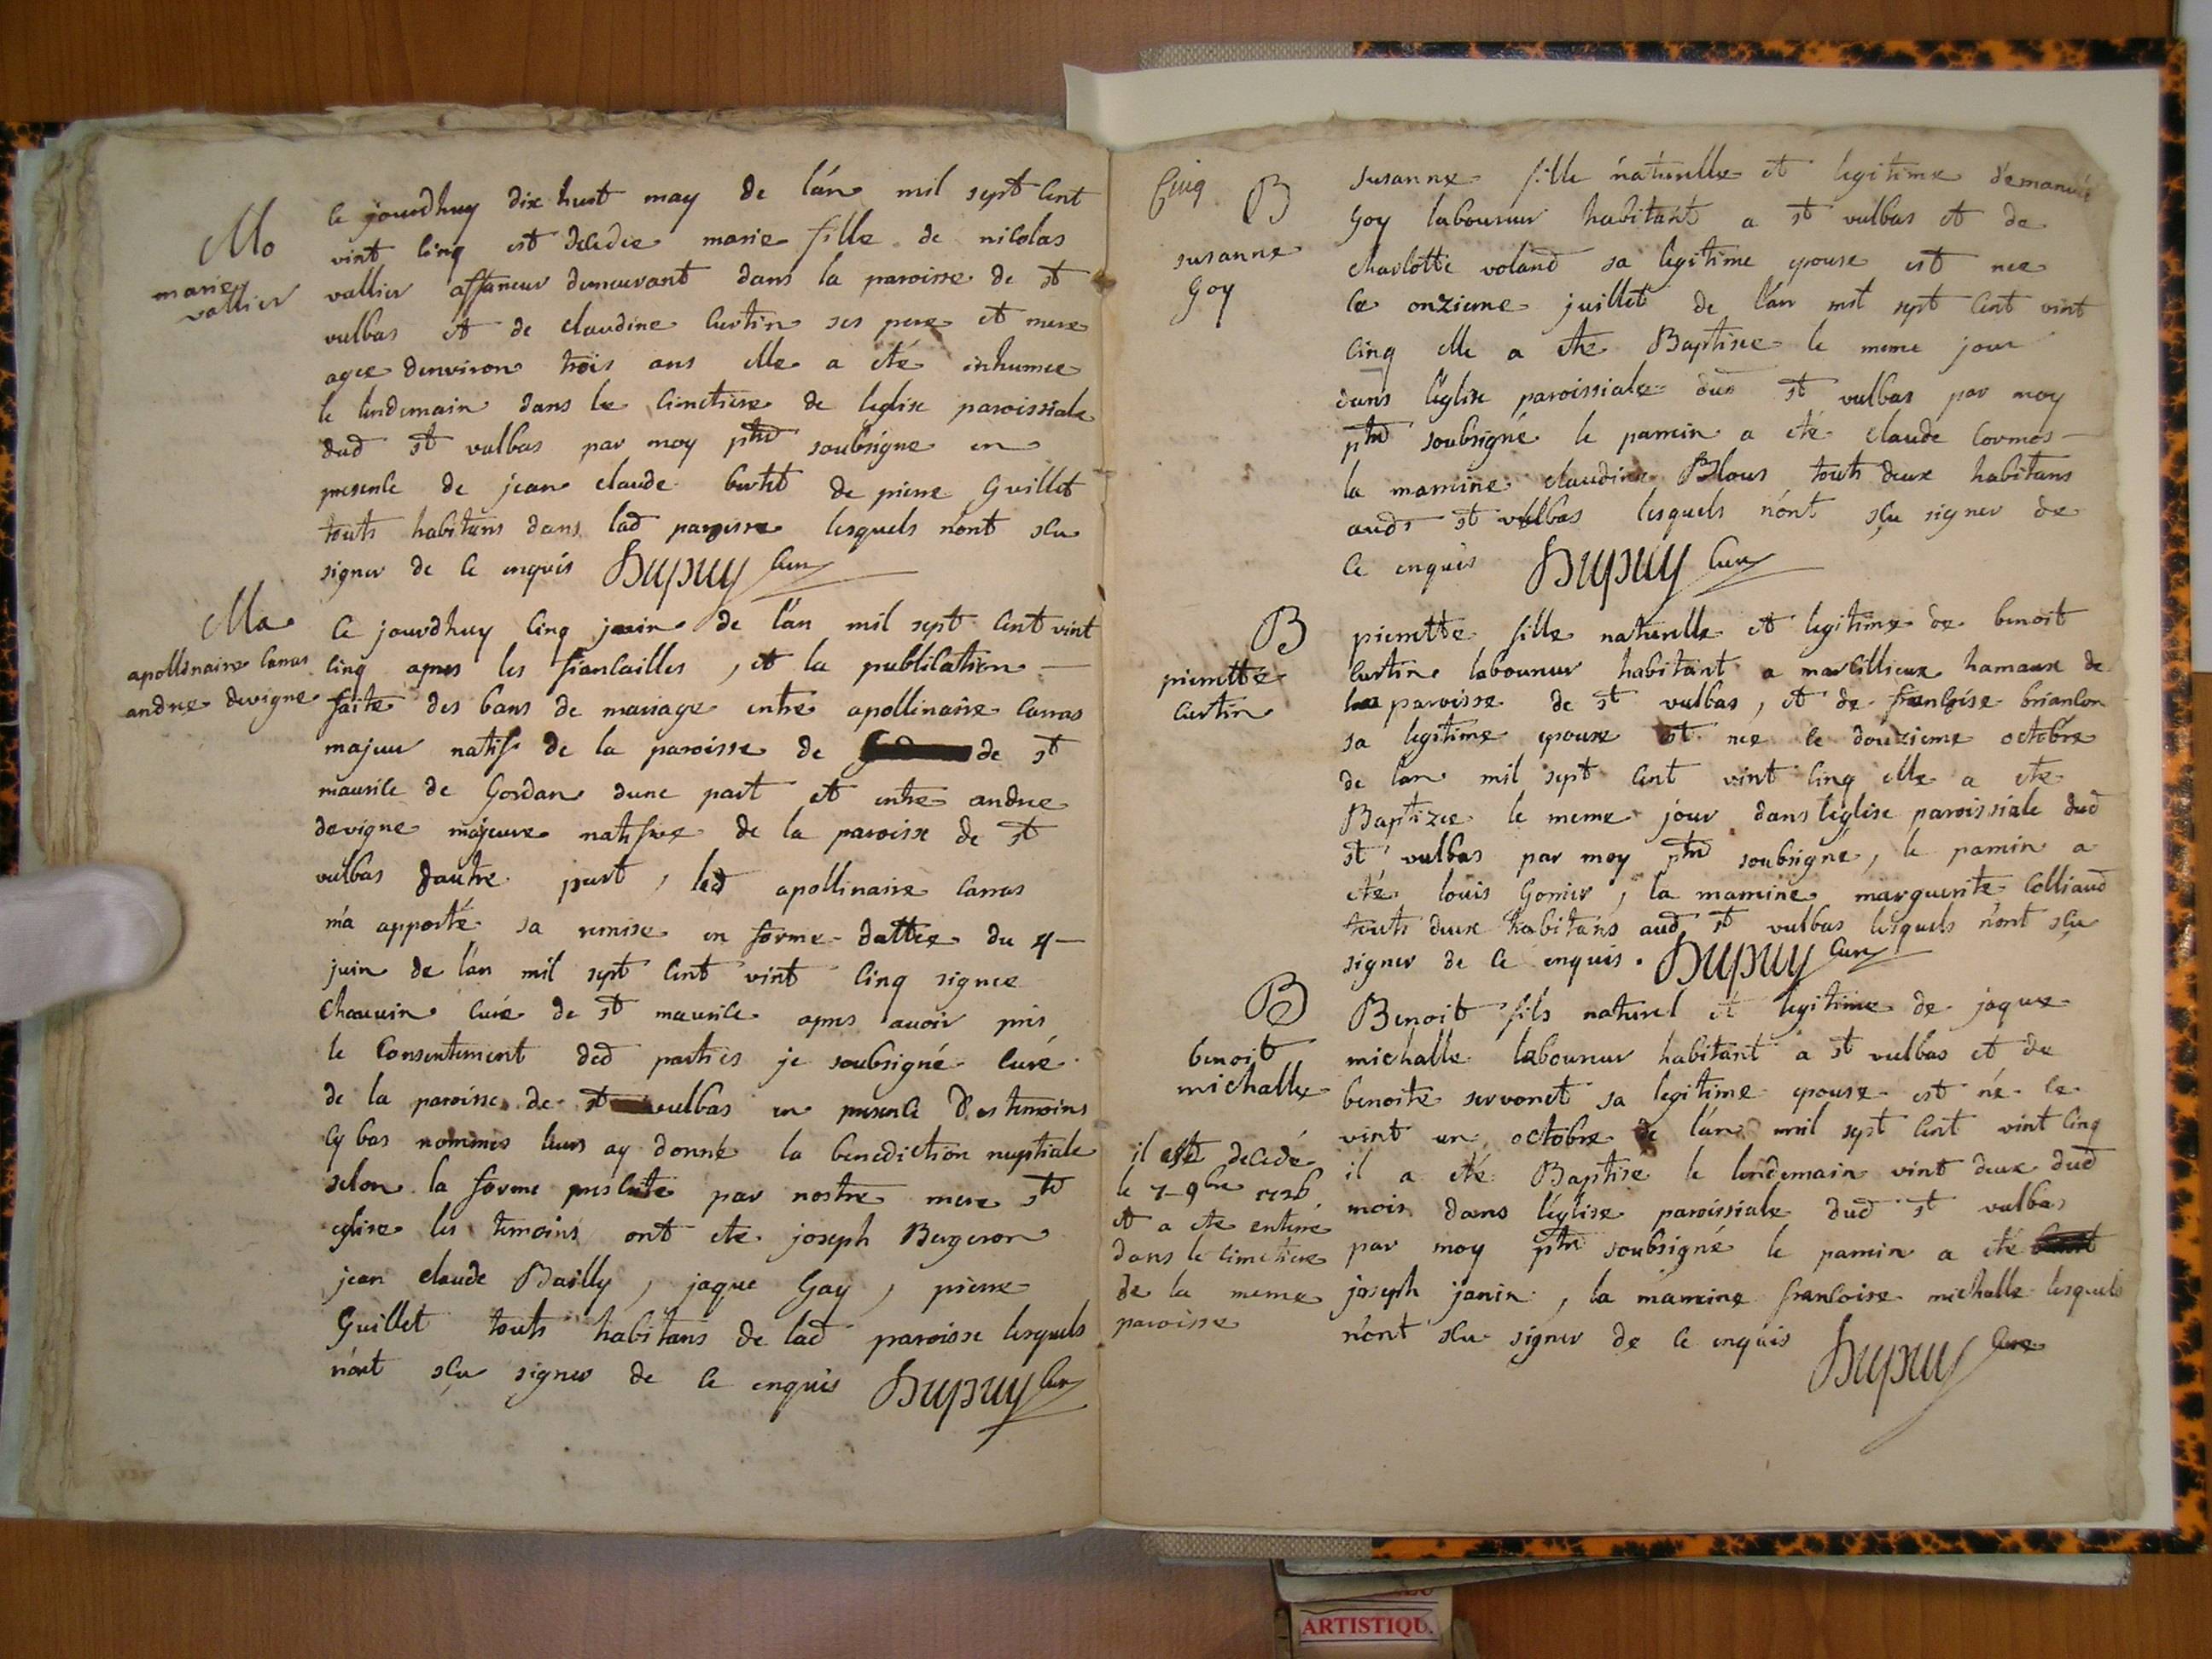 Mo
marie
vallier
ce jourdhuy dix huit may de l'an mil sept cent
vint cinq est decedee marie fille de nicolas
vallier affaneur demeurant dans la paroisse de st
vulbas et de claudine curtin ses pere et mere
agee denviron trois ans elle a eté inhumee
le lendemain dans le cimetiere de leglise paroissiale
dud st vulbas par moy ptre soubsigne en
presence de jean claude bertet de pierre Guillet
touts habitans dans lad paroisse lesquels n'ont scu
signer de ce enquis Dupuy curé
Ma
apollinaire carras
andree devigne
ce jourdhuy cinq juin de l'an mil sept cent vint
cinq apres les fiancailles, et la publication
faite des bans de mariage entre apollinaire carras
majeur natif de la paroisse de de st
maurice de Gordan dune part et entre andree
devigne majeure natifve de la paroisse de st
vulbas dautre part, led apollinaire carras
m'a apporté sa remise en forme dattee du 4
juin de l'an mil sept cent vint cinq signee
chauvin curé de st maurice apres avoir pris
le consentement ded parties je soubsigné curé
de la paroisse de st vulbas en presence des temoins
cy bas nommes leurs ay donné la benediction nuptiale
selon la forme prescrite par nostre mere ste
eglise les temoins ont ete joseph Bergeron
jean claude Bailly, jaque Gay, pierre
Guillet touts habitans de lad paroisse lesquels
n'ont scu signer de ce enquis Dupuy curé
Cinq
B
susanne
Goy
susanne fille naturelle et legitime d'emanuel
Goy laboureur habitant a st vulbas et de
charlotte voland sa legitime epouse est nee
le onzieme juillet de l'an mil sept cent vint
cinq elle a ete Baptisee le meme jour
dans l'eglise paroissiale dud st vulbas par moy
ptre soubsigné le parrin a eté claude cormos
la marrine claudine Blous touts deux habitans
auds st vulbas lesquels n'ont scu signer de
ce enquis Dupuy curé
B
pierrette
curtin
pierrette fille naturelle et legitime de benoit
curtin laboureur habitant a marcillieux hamaux de
la paroisse de st vulbas, et de francoise briancon
sa legitime epouse est nee le douzieme octobre
de lan mil sept cent vint cinq elle a ete
Baptizee le meme jour dans l'eglise paroissiale dud
st vulbas par moy ptre soubsigne, le parrin a
eté louis Gonier, la marrine marguerite colliaud
touts deux habitans aud st vulbas lesquels n'ont scu
signer de ce enquis. Dupuy curé
B
benoit
michalle
Benoit fils naturel et legitime de jaque
michalle laboureur habitant a st vulbas et de
benoite servonet sa legitime epouse est né le
vint un octobre de l'an mil sept cent vint cinq
il a eté Baptise le lendemain vint deux dud
mois dans l'eglise paroissiale dud st vulbas
par moy ptre soubsigné le parrin a eté
joseph janin, la marrine francoise michalle lesquels
n'ont scu signer de ce enquis Dupuy curé
il est decedé
le 7 9bre 1726
et a ete enterré
dans le cimetiere
de la meme
paroisse
ARTISTIQU.